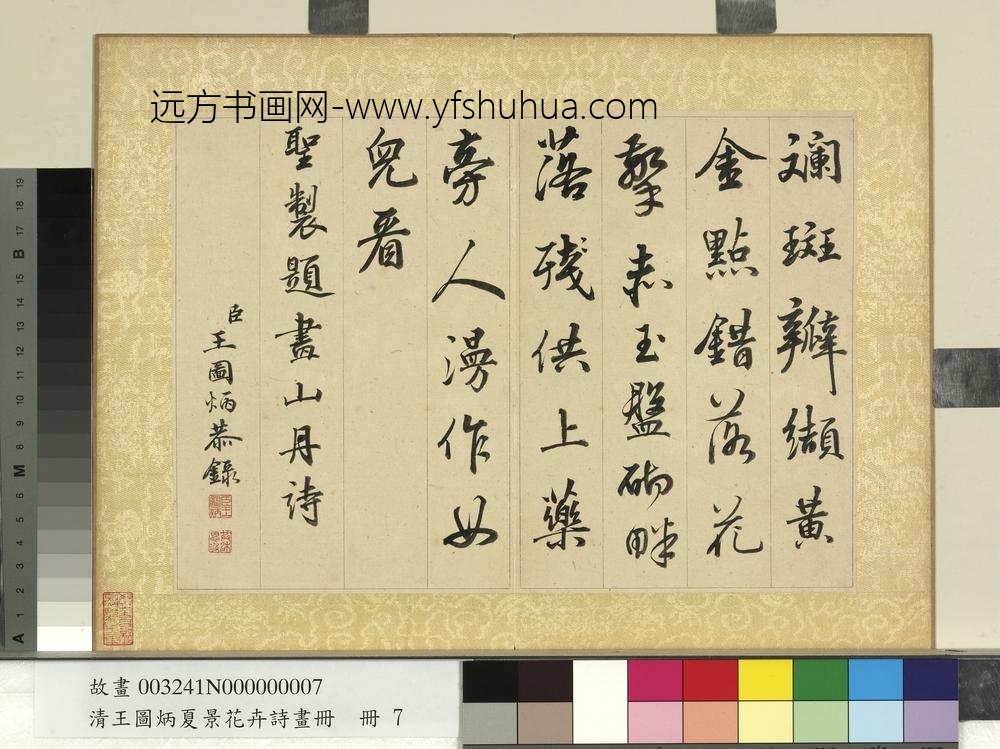 远方书画网-www.yfshuhua.com
斕斑瓣纈黃
金點錯落花
擎赤玉盤砌畔
落殘供上藥
旁人漫作女
兒看
聖製題畫山丹詩
臣王圖炳恭錄
故畫 003241N000000007
清王圖炳夏景花卉詩畫冊 冊 7
19 18 17 B 15 14 13 12 11 10 9 8 M 6 5 4 3 2 1 A